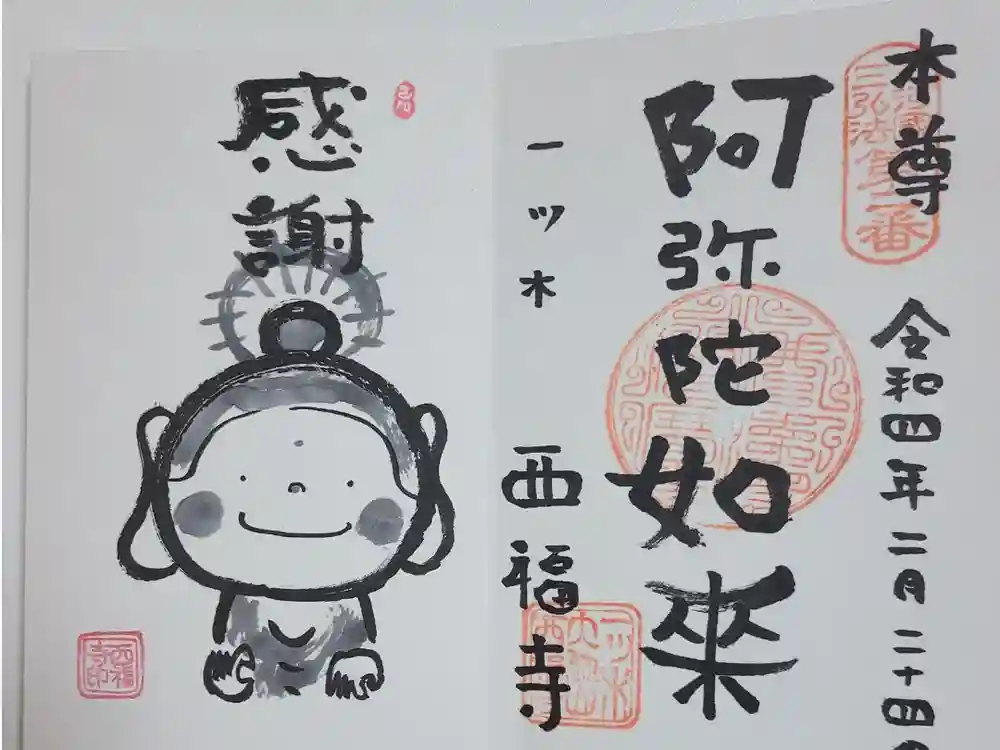 本尊
令和四年二月二十四日
阿弥陀如来
一ツ木
西福寺
感謝
西福寺印